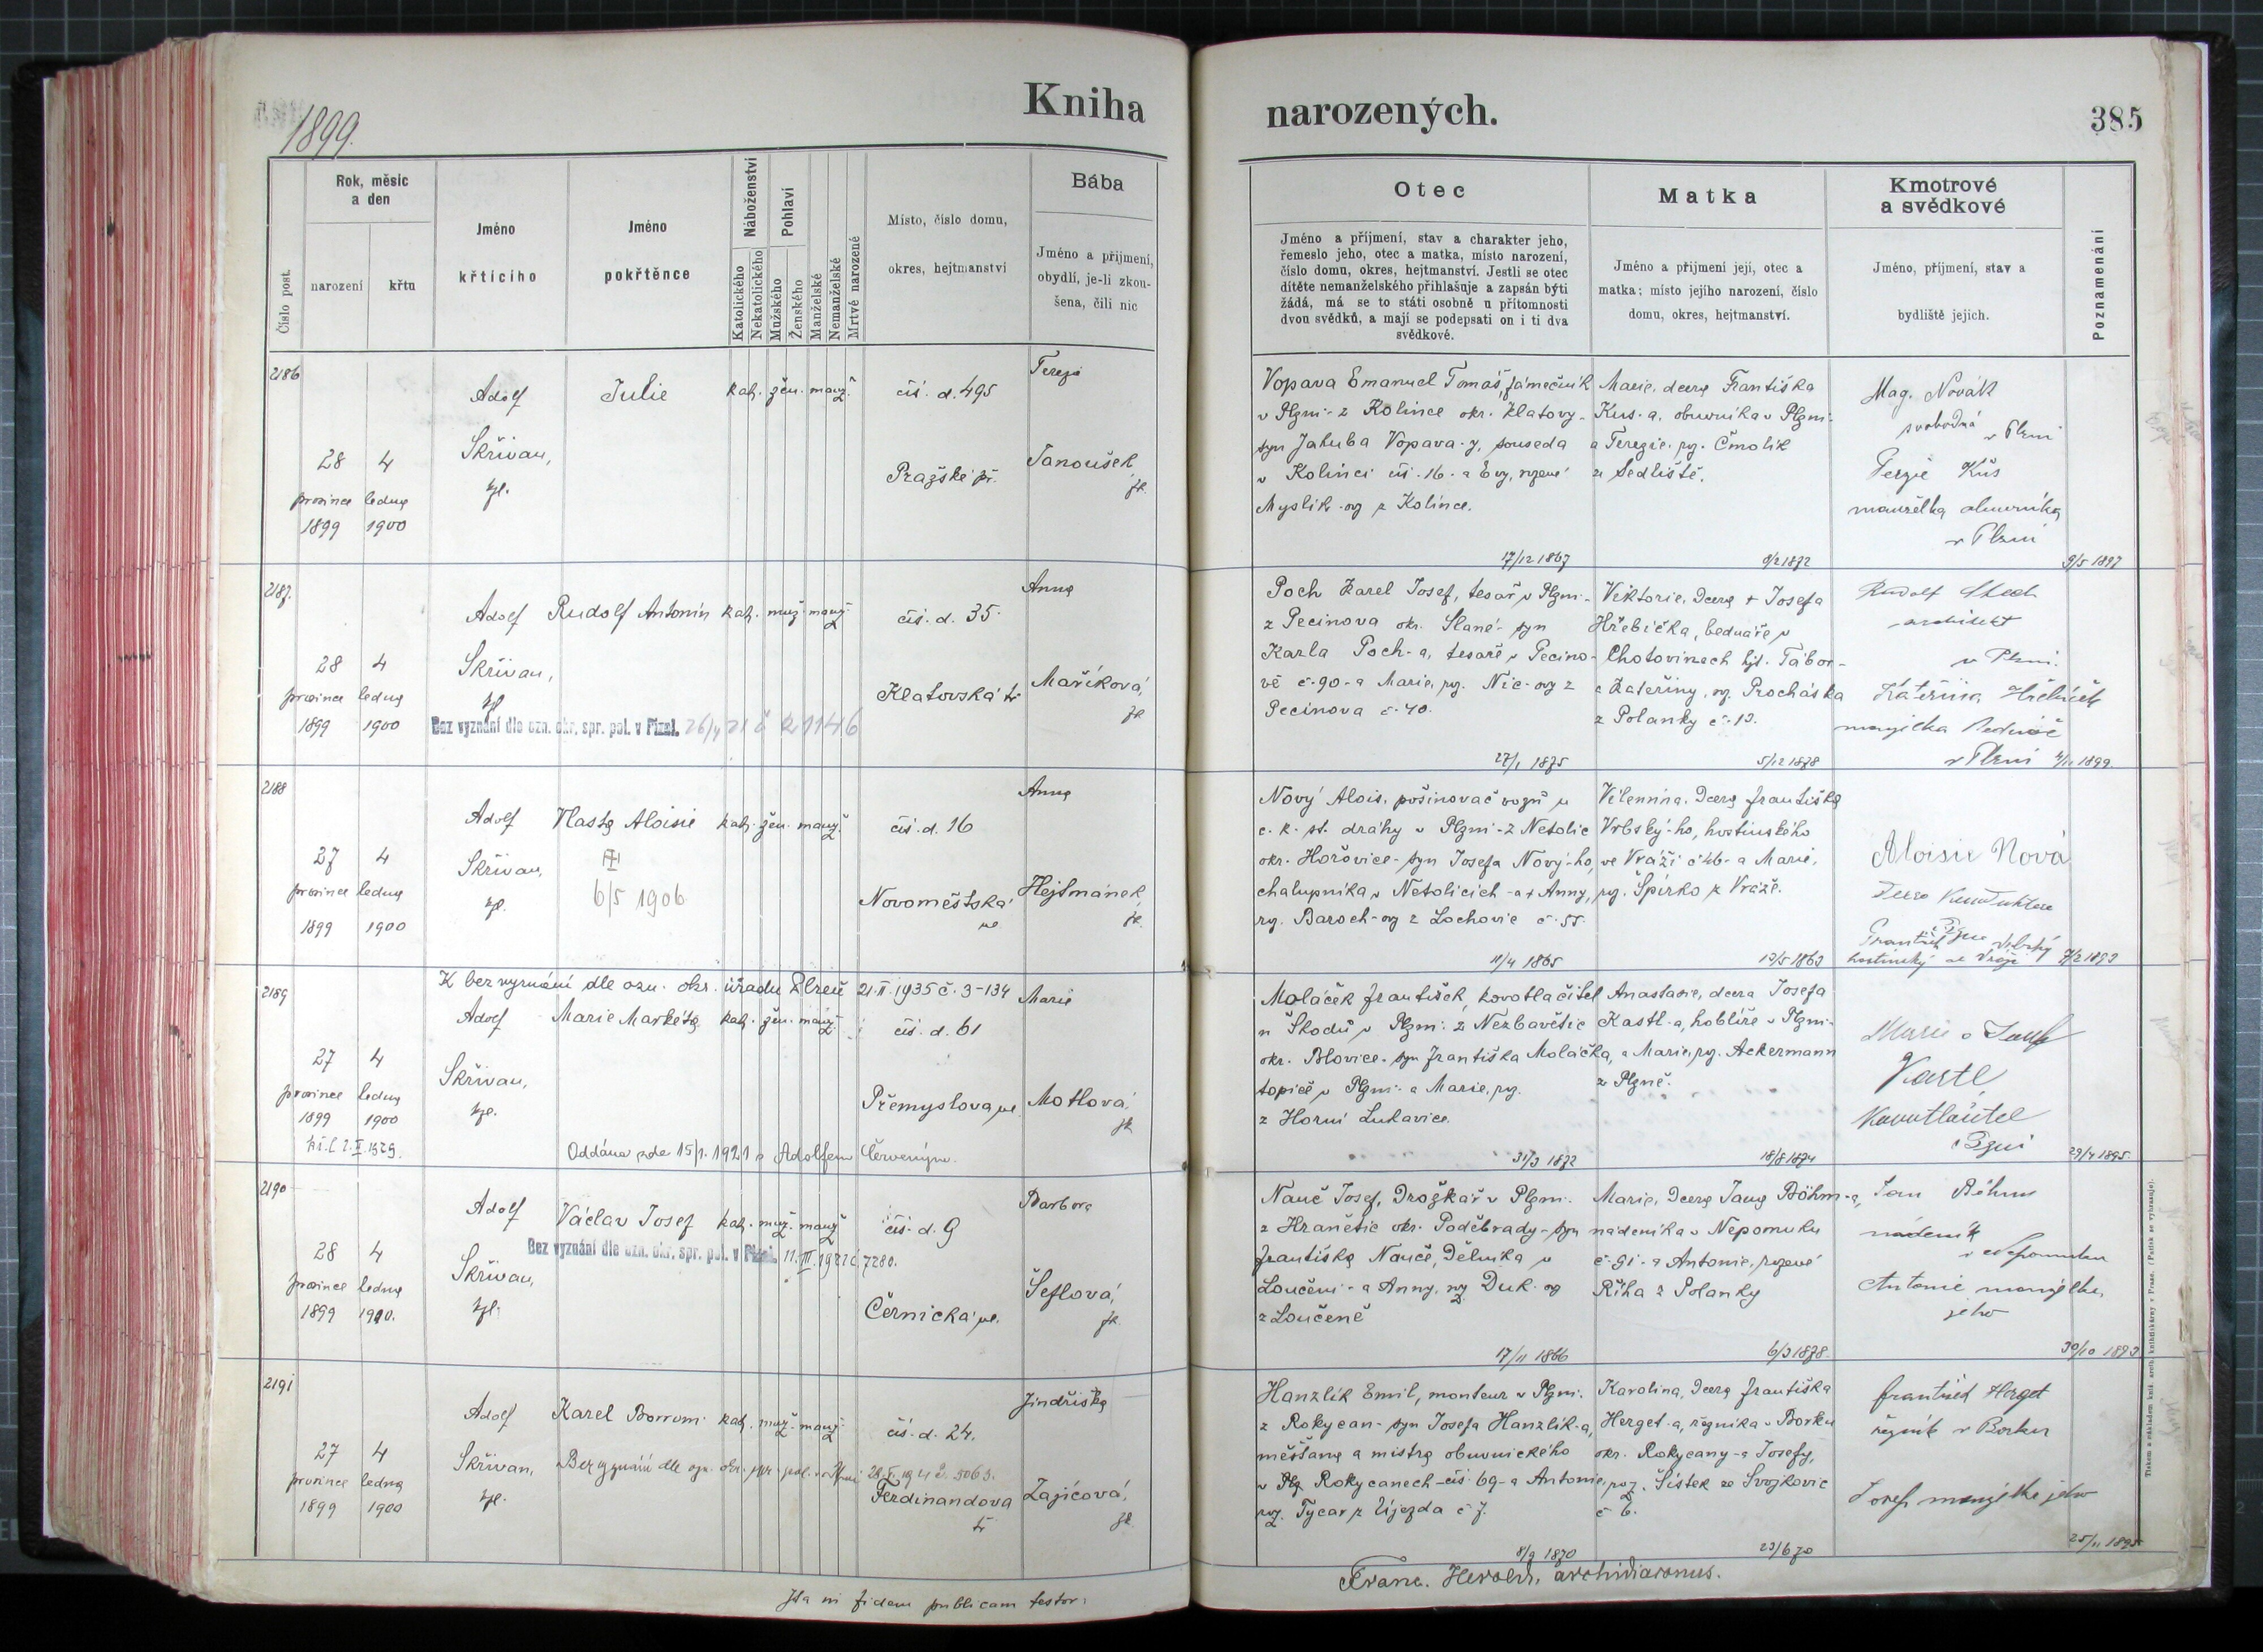 1899.
Kniha narozených.
385
Číslo post.
Rok, měsíc a den
narození
křtu
Jméno křtícího
Jméno pokřtěnce
Náboženství
Katolického
Nekatolického
Pohlaví
Mužského
Ženského
Manželské
Nemanželské
Mrtvé narozené
Místo, číslo domu,
okres, hejtmanství
Bába
Jméno a přijmení,
obydlí, je-li zkou-
šena, čili nic
Otec
Jméno a příjmení, stav a charakter jeho,
řemeslo jeho, otec a matka, místo narození,
číslo domu, okres, hejtmanství. Jestli se otec
dítěte nemanželského přihlašuje a zapsán býti
žádá, má se to státi osobně u přítomnosti
dvou svědků, a mají se podepsati on i ti dva
svědkové.
Matka
Jméno a přijmení její, otec a
matka; místo jejího narození, číslo
domu, okres, hejtmanství.
Kmotrové
a svědkové
Jméno, příjmení, stav a
bydliště jejich.
Poznamenání
2186
28 prosince 1899
4 ledna 1900
Adolf
Skřivan,
kpl.
Julie
kat. žen. manž.
čís. d. 495
Pražské př.
Terezie
Janoušek
zk.
Vopava Emanuel Tomáš, zámečník
v Plzni - z Kolince okr. Klatovy -
syn Jakuba Vopava-y, souseda
v Kolinci čís. 16 - a Evy, rozené
Myslík-ovy z Kolince.
17/12 1867
Marie, dcera Františka
Kus-a, obuvníka v Plzni -
a Terezie, roz. Čmolík
ze Sedliště.
8/2 1872
Mag. Novák
svobodná
v Plzni
Terezie Kůs
manželka obuvníka
v Plzni
9/5 1897
2187.
28 prosince 1899
4 ledna 1900
Adolf
Skřivan,
kpl.
Rudolf Antonín
kat. muž. manž.
Bez vyznání dle ozn. okr. spr. pol. v Plzni. 26/4 21 č 21146
čís. d. 35.
Klatovská tř.
Anna
Maříková,
zk.
Poch Karel Josef, tesař v Plzni -
z Pecinova okr. Slané - syn
Karla Poch-a, tesaře v Pecino-
vě č. 90 - a Marie, roz. Nic-ovy z
Pecinova č. 40.
27/1 1875
Viktorie, dcera + Josefa
Hřebíčka, bednáře v
Chotovinách hjt. Tábor -
a Kateřiny, roz. Procháska
z Polanky č. 13.
5/12 1878
Rudolf Štech
architekt
v Plzni.
Kateřina Hřebíček
manželka
v Plzni
1899
2188
27 prosince 1899
4 ledna 1900
Adolf
Skřivan,
kpl.
Vlasta Aloisie
6/5 1906
kat. žen. manž.
čís. d. 16
Novoměstská
ul.
Anna
Hejtmánek,
zk.
Nový Alois, pošinovač vozů u
c. k. st. dráhy v Plzni - z Netolic
okr. Hořovice - syn Josefa Nový-ho,
chalupníka v Netolicích - a + Anny,
roz. Baroch-ovy z Lochovic č. 55.
11/4 1865
Vilemína, dcera Františka
Vrbský-ho, hostinského
ve Vráži č. 46 - a Marie,
roz. Špirko z Vráže.
19/5 1863
Aloisie Nová
dcera
František Vrbský
hostinský ve Vráži
7/2 1893
2189
27 prosince 1899
4 ledna 1900
K bez vyznání dle ozn. okr. úřadu Plzeň 21.II.1935 č. 3-134
Adolf
Skřivan,
kpl.
Marie Markéta
kat. žen. manž.
čís. d. 61
Přemyslova ul.
Oddána zde 15/1. 1921 s Adolfem Červeným.
Marie
Motlová,
zk.
Moláček František, kovotlačitel
u Škodů v Plzni - z Nezbavětic
okr. Blovice - syn Františka Moláčka,
topiče v Plzni - a Marie, roz.
z Horní Lukavice.
31/3 1872
Anastasie, dcera Josefa
Kastl-a, hoblíře v Plzni -
a Marie, roz. Ackermann
z Plzně.
18/8 1874
Marie a Josef
Kastl
Kovotlačitel
Plzni
29/4 1895.
2190
28 prosince 1899
4 ledna 1900.
Adolf
Skřivan,
kpl.
Václav Josef
kat. muž. manž.
Bez vyznání dle ozn. okr. spr. pol. v Plzni. 11. III. 1921 č. 7280.
čís. d. 9
Černická ul.
Barbora
Šeflová,
zk.
Nauč Josef, drožkář v Plzni -
z Hranětic okr. Poděbrady - syn
Františka Nauče, dělníka v
Loučeni - a Anny, roz. Duk-ovy
z Loučeně
17/11 1866
Marie, dcera Jana Böhm-a,
nádeníka v Nepomuku
č. 91 - a Antonie, rozené
Říha z Polanky
6/3 1878.
Jan Böhm
nádeník
v Nepomuku
Antonie manželka
jeho
30/10 1893
2191
27 prosince 1899
4 ledna 1900
Adolf
Skřivan,
kpl.
Karel Borrom.
kat. muž. manž.
Bez vyznání dle ozn. okr. spr. pol. v Plzni
čís. d. 24.
Ferdinandova
tř.
Jindřiška
Zajícová,
zk.
Hanzlík Emil, monteur v Plzni -
z Rokycan - syn Josefa Hanzlík-a,
měšťana a mistra obuvnického
v Rokycanech čís. 69 - a Antonie,
roz. Tycar z Újezda č. 7.
8/9 1870
Karolina, dcera Františka
Herget-a, řezníka v Borku
okr. Rokycany - a Josefy,
roz. Šístek ze Svojkovic
č. 6.
23/6 70
František Herget
řezník v Borku
Josefa manželka jeho
25/11 1895
Ita in fidem publicam testor:
Franc. Herold, archidiaconus.